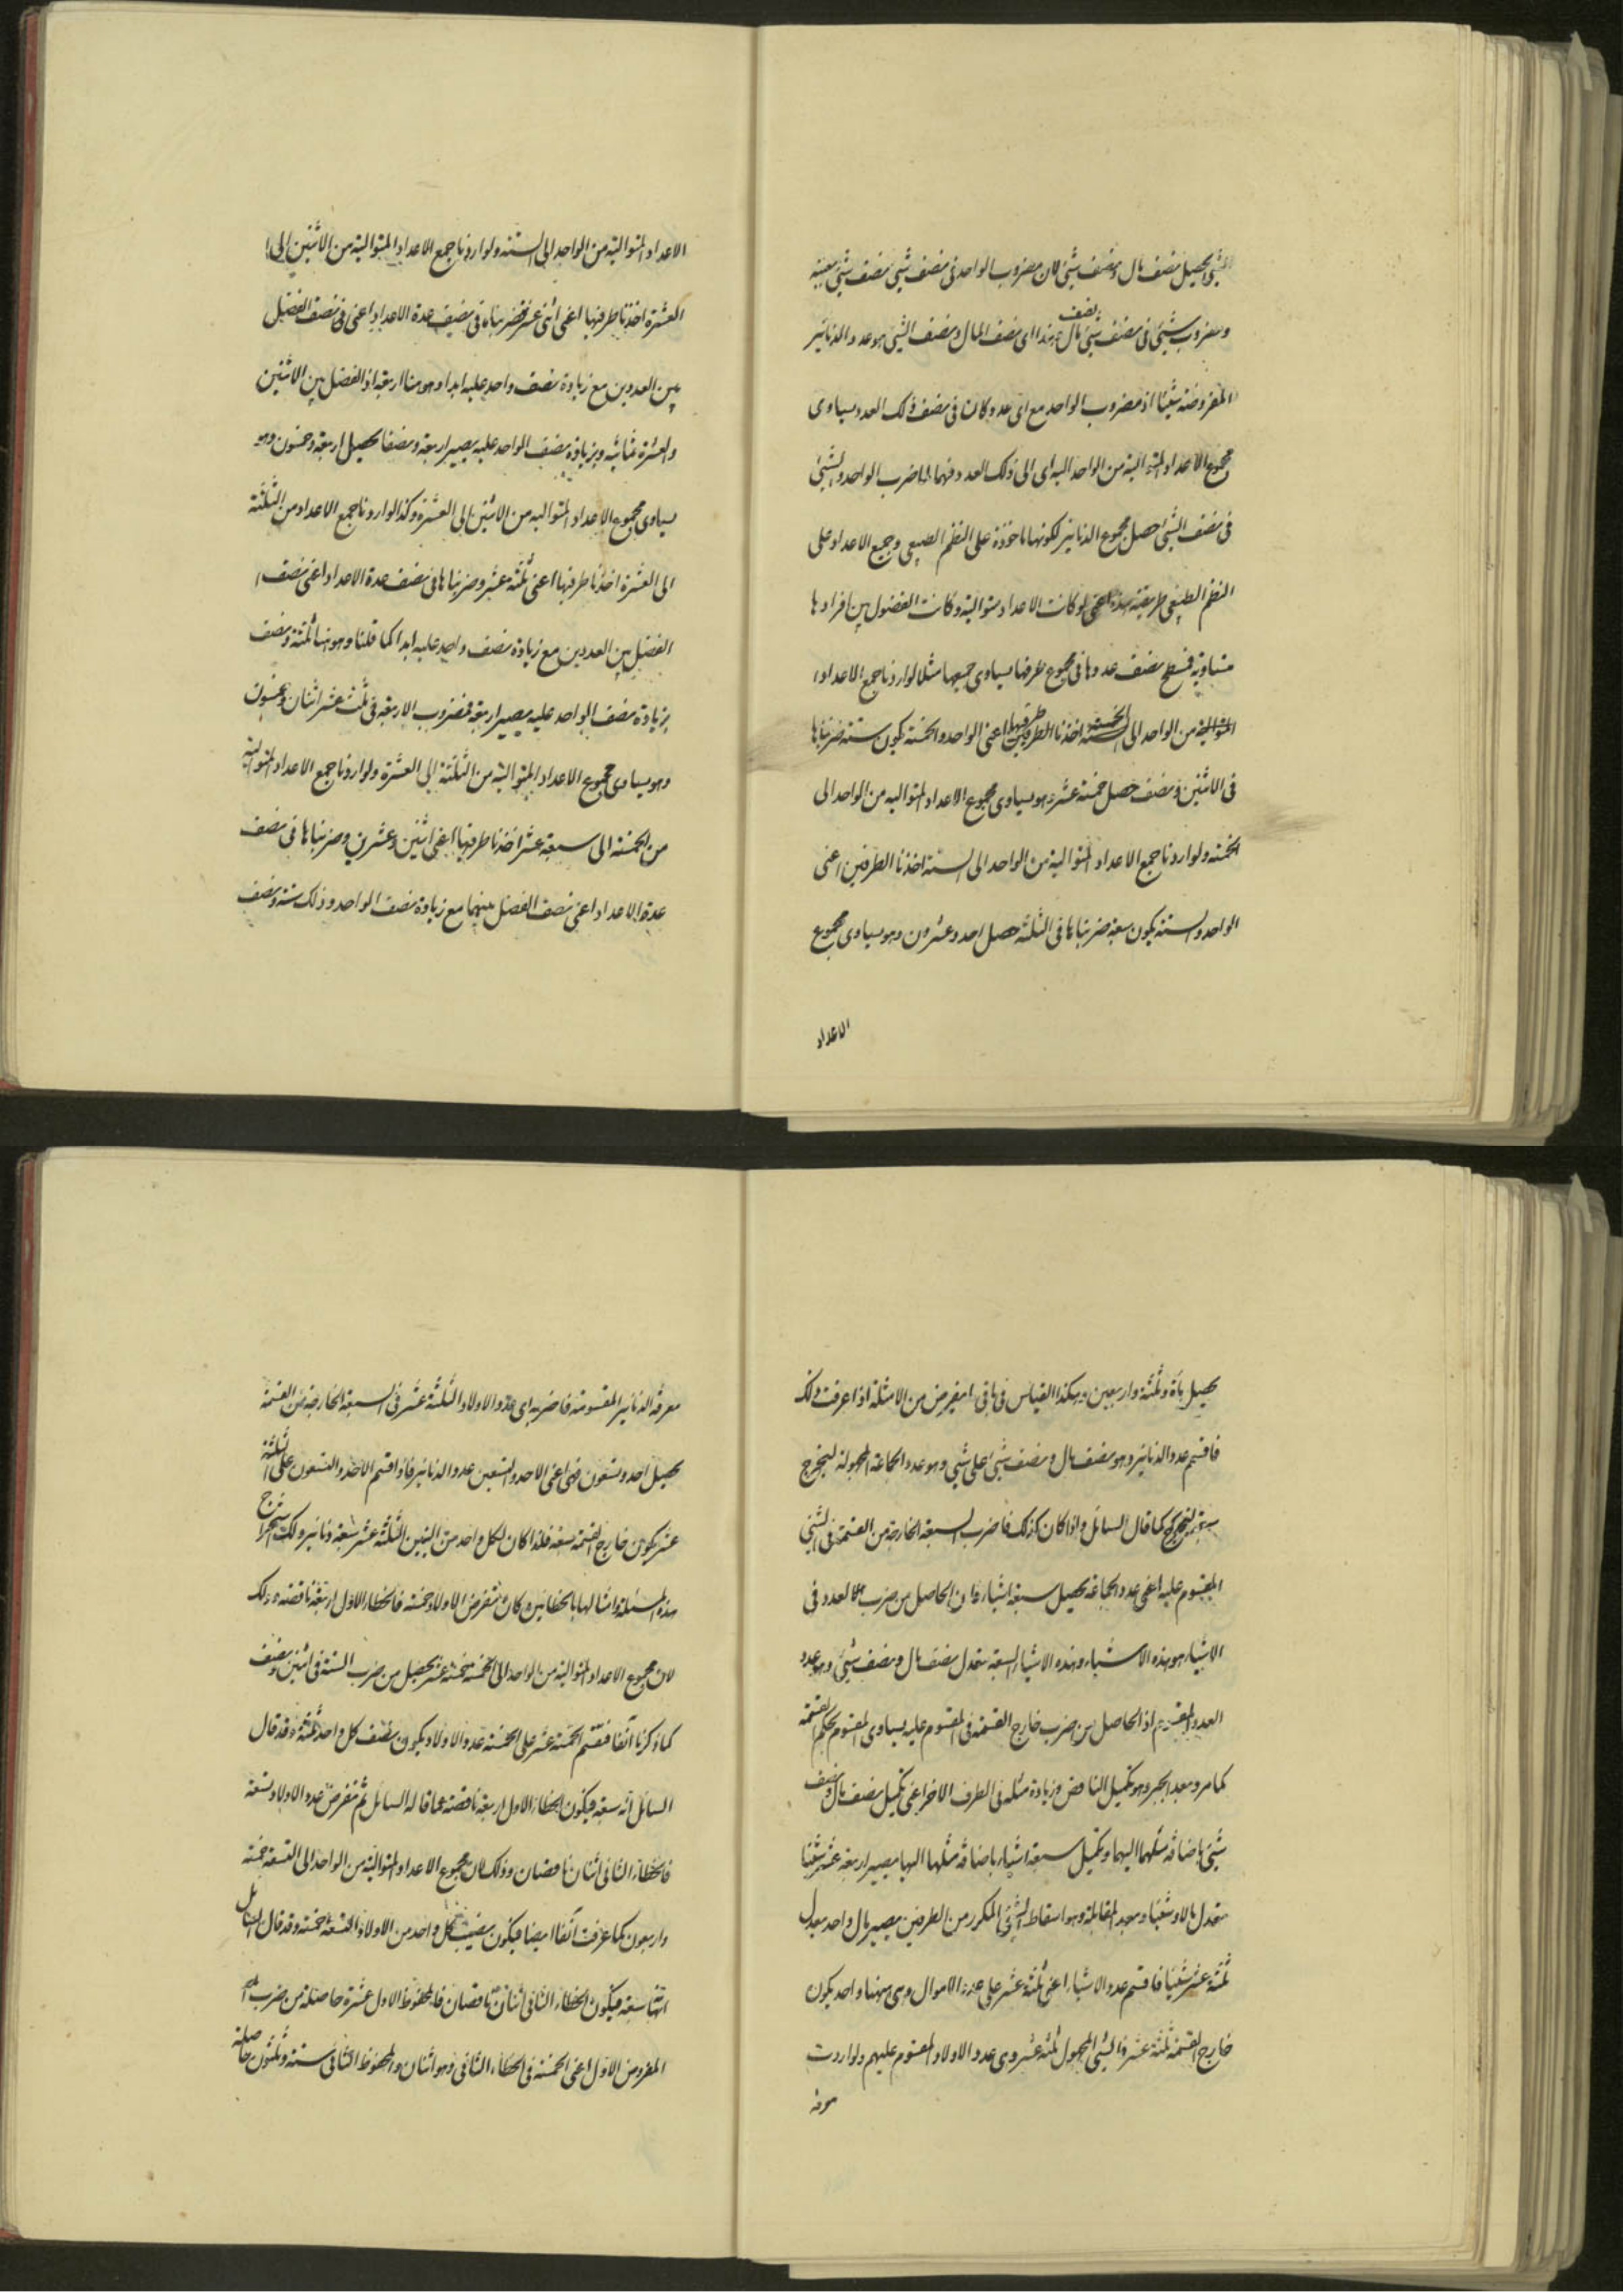 الشئ يحصل نصف مال ونصف شئ لان مضروب الواحد فى نصف شئ نصف شئ بعينه
ومضروب شئ فى نصف شئ نصف مال وهذا اى نصف المال ونصف الشئ هو عدد الدنانير
المفروضة شيئا اذ مضروب الواحد مع اى عدد كان فى نصف ذلك العدد يساوى
مجموع الاعداد المتوالية من الواحد اليه اى الى ذلك العدد فهما لما ضرب الواحد والشئ
فى نصف الشئ حصل مجموع الدنانير لكونها ماخوذة على النظم الطبيعى وجمع الاعداد على
النظم الطبيعى طريقته هذه اعنى لو كانت الاعداد متوالية وكانت الفضول بين افرادها
متساوية فسطح نصف عددها فى مجموع طرفيها يساوى جميعها مثلا لو اردنا جمع الاعداد
المتوالية من الواحد الى الخمسة اخذنا طرفيها اعنى الواحد والخمسة يكون ستة ضربناها
فى الاثنين ونصف حصل خمسة عشر وهو يساوى مجموع الاعداد المتوالية من الواحد الى
الخمسة ولو اردنا جمع الاعداد المتوالية من الواحد الى الستة اخذنا الطرفين اعنى
الواحد والستة يكون سبعة ضربناها فى الثلثة حصل احد وعشرون وهو يساوى مجموع
الاعداد
الاعداد المتوالية من الواحد الى الستة ولو اردنا جمع الاعداد المتوالية من الاثنين الى
العشرة اخذنا طرفيها اعنى اثنى عشر فضربناه فى نصف عدة الاعداد اعنى فى نصف الفضل
بين العددين مع زيادة نصف واحد عليه ابدا وهو هنا اربعة اذ الفضل بين الاثنين
والعشرة ثمانية وبزيادة نصف الواحد عليه يصير اربعة ونصفا يحصل اربعة وخمسون وهو
يساوى مجموع الاعداد المتوالية من الاثنين الى العشرة وكذا لو اردنا جمع الاعداد من الثلثة
الى العشرة اخذنا طرفيها اعنى ثلثة عشر وضربناها فى نصف عدة الاعداد اعنى نصف
الفضل بين العددين مع زيادة نصف واحد عليه ابدا كما قلنا وهو هنا ثلثة ونصف
بزيادة نصف الواحد عليه يصير اربعة فمضروب الاربعة فى ثلث عشر اثنان وخمسون
وهو يساوى مجموع الاعداد المتوالية من الثلثة الى العشرة ولو اردنا جمع الاعداد المتوالية
من الخمسة الى سبعة عشر اخذنا طرفيها اعنى اثنين وعشرين وضربناها فى نصف
عدة الاعداد اعنى نصف الفضل بينهما مع زيادة نصف الواحد وذلك ستة ونصف
يحصل مأة وثلثة واربعين وهكذا القياس فى باقى ما يفرض من الامثلة اذا عرفت ذلك
فاقسم عدد الدنانير وهو نصف مال ونصف شئ على شئ وهو عدد الجماعة المجهولة ليخرج
سبعة كما قال السائل واذا كان كذلك فاضرب السبعة الخارجة من القسمة فى الشئ
المقسوم عليه اعنى عدد الجماعة يحصل سبعة اشياء فان الحاصل من ضرب العدد فى
الاشياء هو هذه الاشياء وهذه الاشياء السبعة تعدل نصف مال ونصف شئ وهو عدد
العدد المقسوم اذ الحاصل من ضرب خارج القسمة فى المقسوم عليه يساوى المقسوم بحكم القسمة
كما مر وبعد الجبر وهو تكميل الناقص وزيادة مثله فى الطرف الاخر اعنى تكميل نصف مال ونصف
شئ باضافة مثلهما اليهما وتكميل سبعة اشياء باضافة مثلها اليها يصير اربعة عشر شيئا
تعدل مالا وشيئا وبعد المقابلة وهو اسقاط الشئ المكرر من الطرفين يصير مال واحد يعدل
ثلثة عشر شيئا فاقسم عدد الاشياء اعنى ثلثة عشر على عدد الاموال وهى ههنا واحد يكون
خارج القسمة ثلثة عشر فالشئ المجهول ثلثة عشر وهى عدد الاولاد المقسوم عليهم ولو اردت
معرفة
معرفة الدنانير المقسومة فاضربه اى عدد الاولاد الثلثة عشر فى السبعة الخارجة من القسمة
يحصل احد وتسعون فهى اعنى الاحد والتسعين عدد الدنانير فاذا قسم الاحد والتسعون على الثلثة
عشر يكون خارج القسمة سبعة فلذا كان لكل واحد من البنين الثلثة عشر سبعة دنانير ولك استخراج
هذه المسئلة وامثالها بالخطأين كان تفرض الاولاد خمسة فالخطاء الاول اربعة ناقصة وذلك
لان مجموع الاعداد المتوالية من الواحد الى الخمسة خمسة عشر يحصل من ضرب الستة فى اثنين ونصف
كما ذكرنا آنفا فنقسم الخمسة عشر على الخمسة عدد الاولاد يكون نصيب كل واحد ثلثة وقد قال
السائل انه سبعة فيكون الخطاء الاول اربعة ناقصة عما قاله السائل ثم تفرض عدد الاولاد تسعة
فالخطاء الثانى اثنان ناقصان وذلك لان مجموع الاعداد المتوالية من الواحد الى التسعة خمسة
واربعون كما عرفت آنفا ايضا فيكون نصيب كل واحد من الاولاد التسعة خمسة وقد قال السائل
انها سبعة فيكون الخطاء الثانى اثنان ناقصان فالمحفوظ الاول عشرة حاصلة من ضرب
المفروض الاول اعنى الخمسة فى الخطاء الثانى وهو اثنان والمحفوظ الثانى ستة وثلثون حاصلة